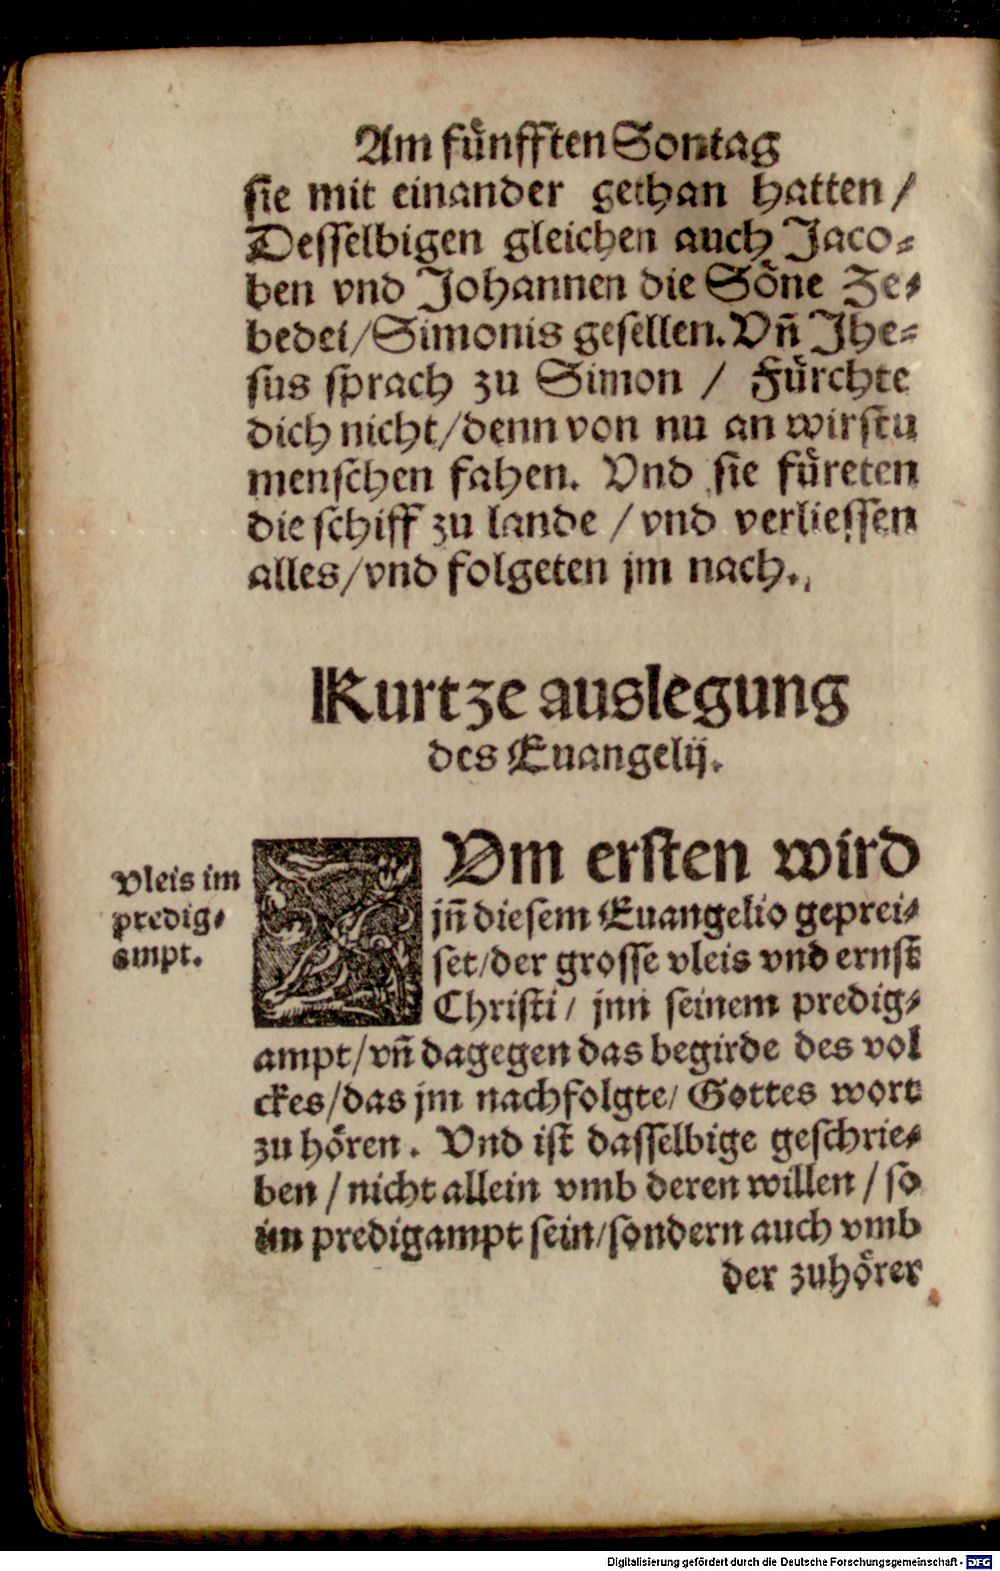 Am fuͤnfften Sontag
sie mit einander gethan hatten /
Desselbigen gleichen auch Jaco⸗
ben vnd Johannen die Soͤne Ze⸗
bedei/Simonis gesellen. Vn̄ Jhe⸗
sus sprach zu Simon / Fuͤrchte
dich nicht/denn von nu an wirstu
menschen fahen. Vnd sie fuͤreten
die schiff zu lande /vnd verliessen
alles/vnd folgeten jm nach.
Kurtze auslegung
des Euangelij.
Vleis im
predig⸗
ampt.
ZVm ersten wird
jn̄ diesem Euangelio geprei⸗
set/der grosse vleis vnd ernst
Christi/ jnn seinem predig⸗
ampt/vn̄ dagegen das begirde des vol
ckes/das jm nachfolgte/ Gottes wort
zu hoͤren. Vnd ist dasselbige geschrie⸗
ben /nicht allein vmb deren willen /so
im predigampt sein/sondern auch vmb
der zuhoͤrer
Digitalisierung gefördert durch die Deutsche Forschungsgemeinschaft - DFG